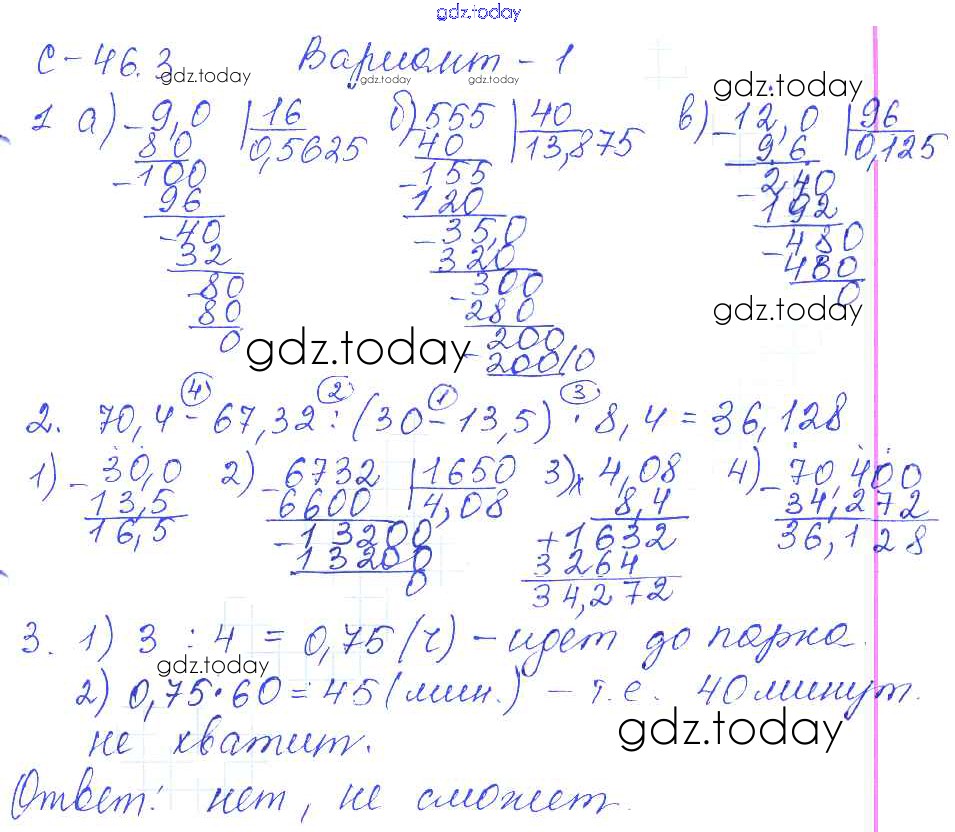 gdz.today
С-46.3 Вариант - 1
gdz.today gdz.today gdz.today gdz.today gdz.today
1 а) - 9,0 | 16 б) - 555 | 40 в) - 12,0 | 96
80 0,5625 40 13,875 9,6 0,125
-100 -155 -2,40
96 120 192
-40 -35,0 -480
32 320 480
-80 -300 0
80 280 gdz.today
0 -200
gdz.today 200 0
④ ② ① ③
2. 70,4 - 67,32 : (30 - 13,5) · 8,4 = 36,128
1) - 30,0 2) - 6732 | 1650 3) x 4,08 4) - 70,400
13,5 6600 4,08 8,4 34,272
16,5 -13200 +1632 36,128
13200 3264
0 34,272
3. 1) 3 : 4 = 0,75 (ч) - идёт до парка.
gdz.today
2) 0,75 · 60 = 45 (мин.) - т.е. 40 минут
gdz.today
не хватит.
Ответ: нет, не сможет.